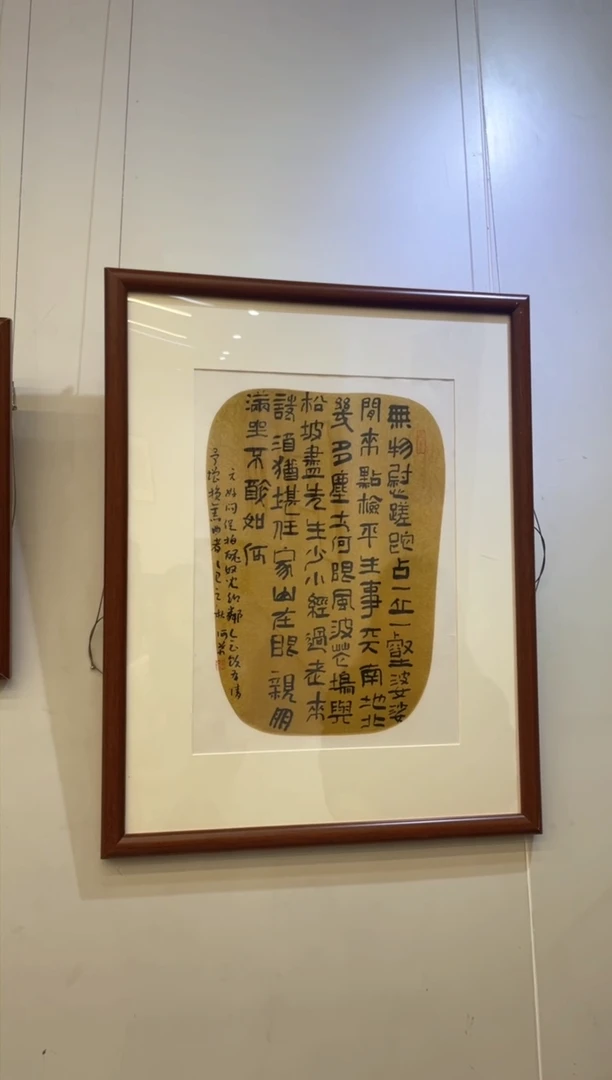 無物慰蹉跎占一丘一壑婆娑
閒來點檢平生事天南地北
幾多塵土何限風波花塢與
松坡盡先生少小經過老來
詩酒猶堪任家山在眼親朋
滿坐不醉如何
元好問促拍醜奴兒